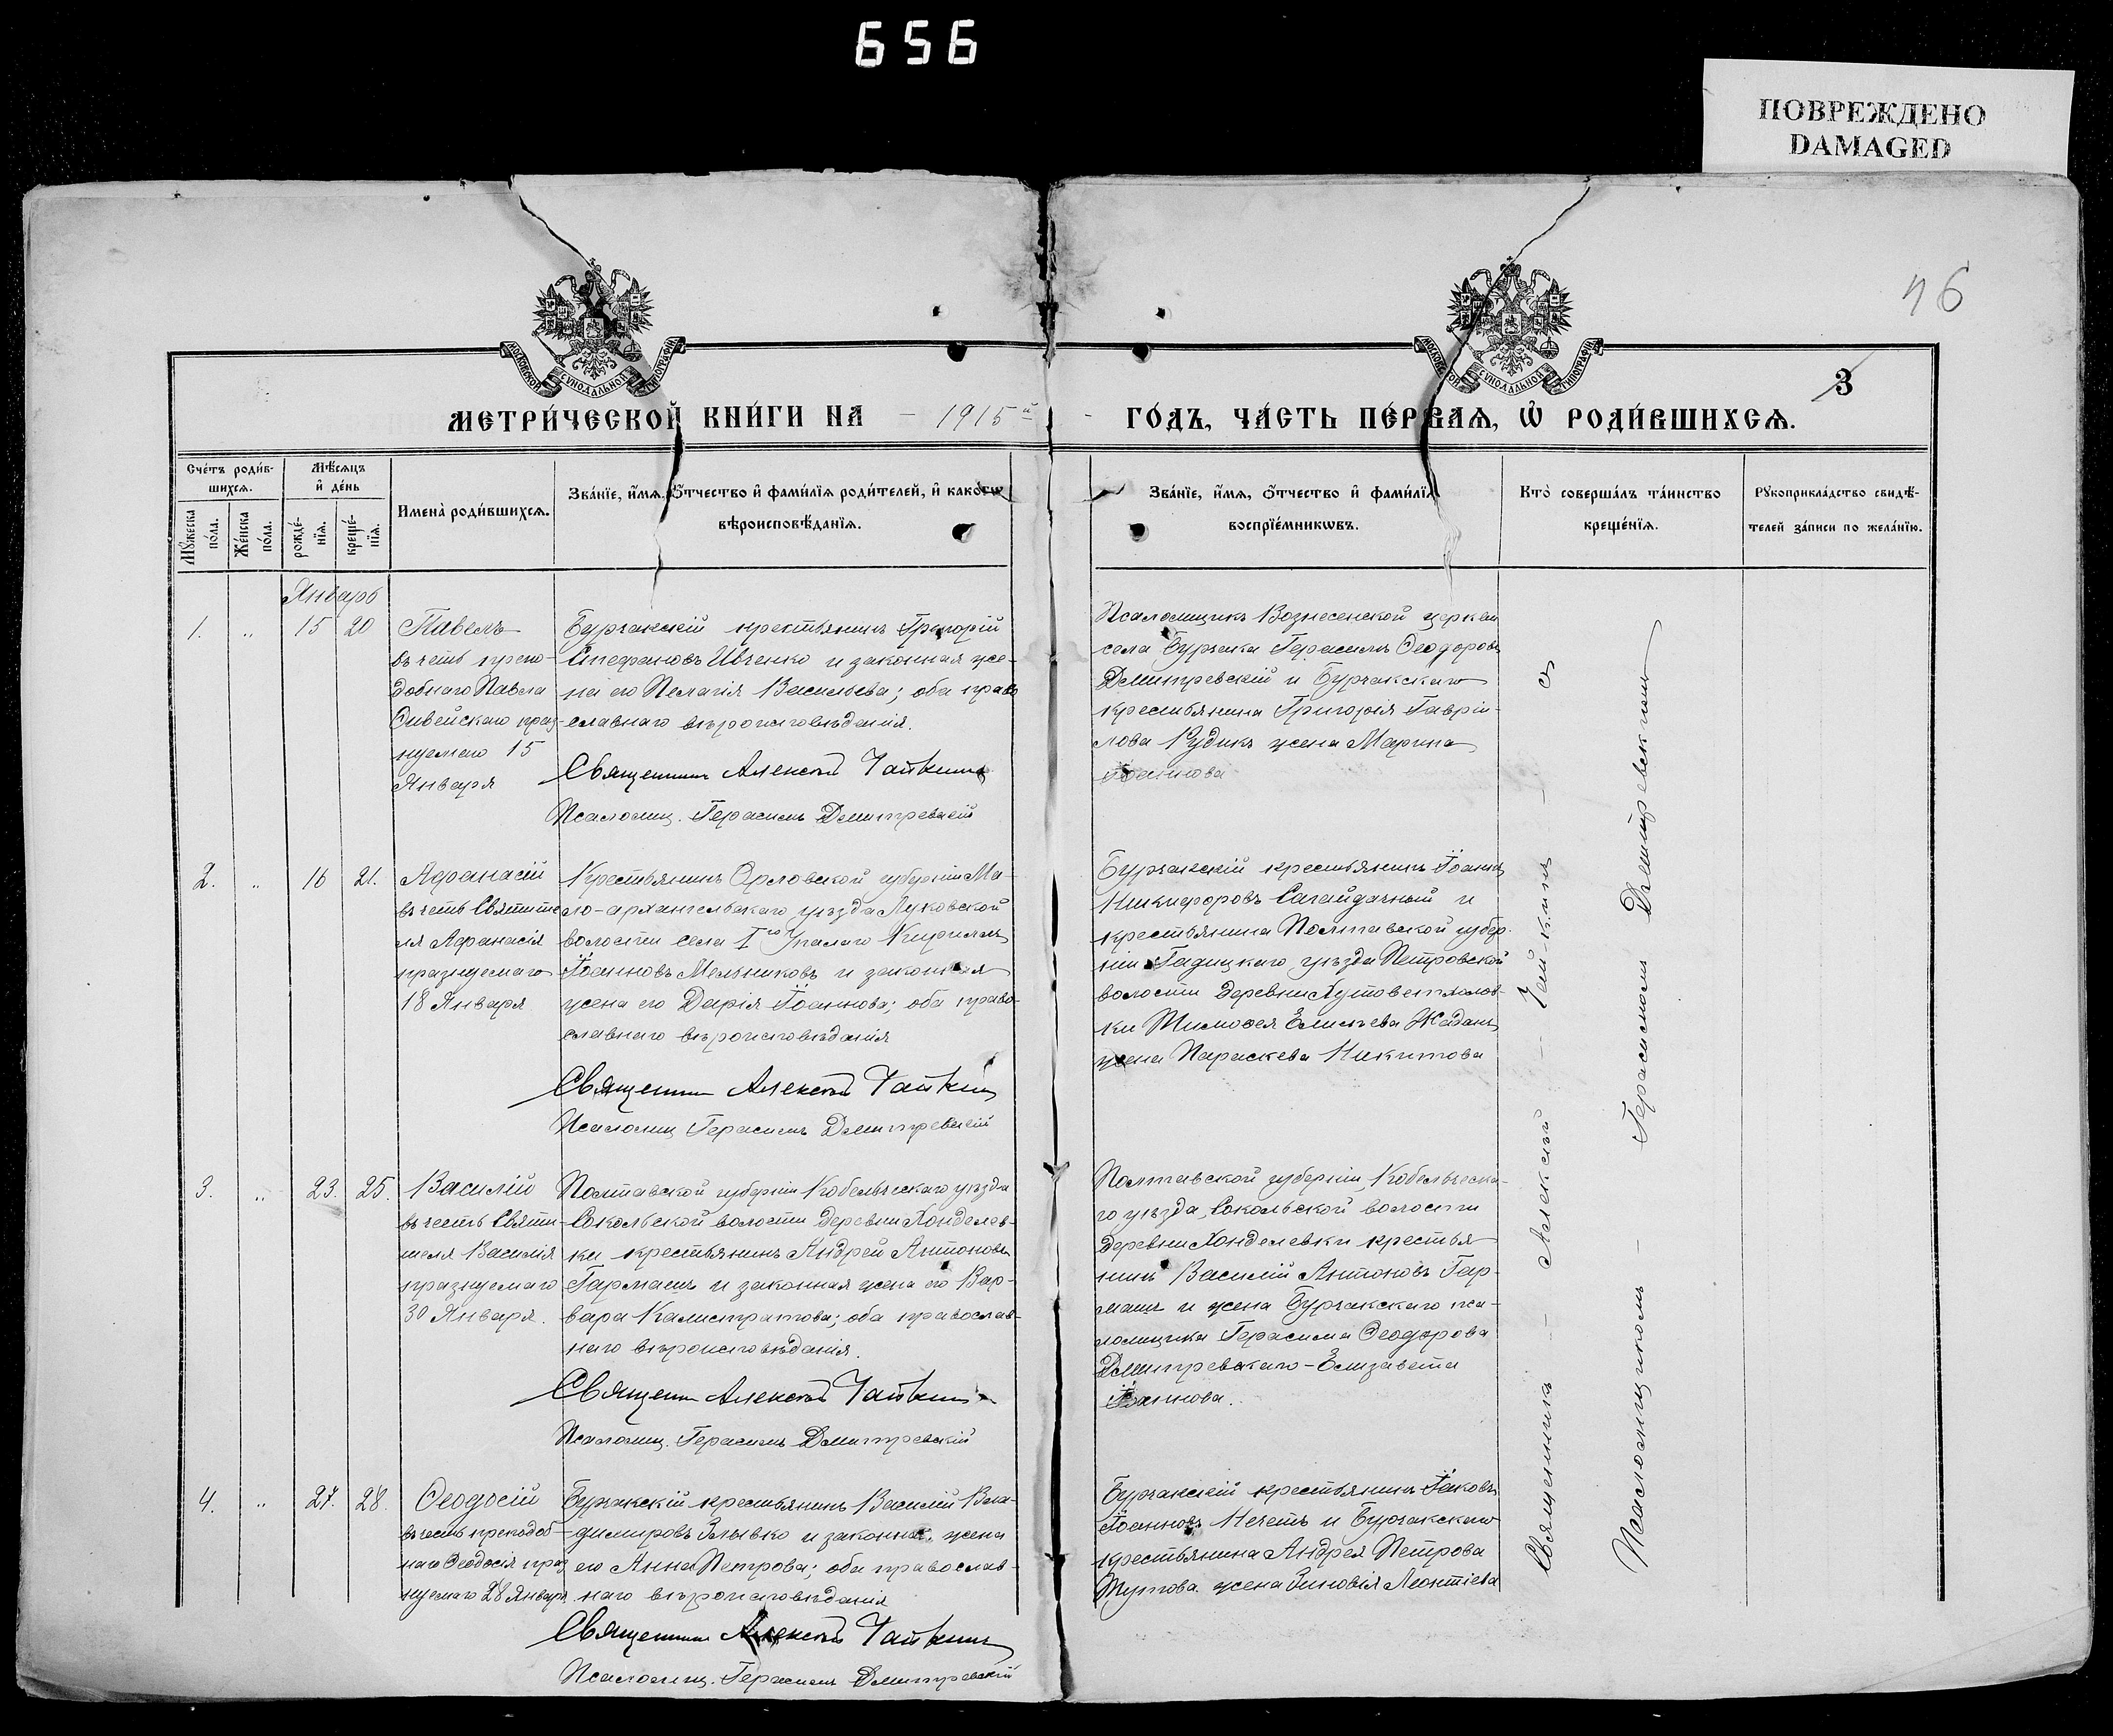 656
ПОВРЕЖДЕНО
DAMAGED
46
3
МОСКОВСКОЙ СѴНОДАЛЬНОЙ ТИПОГРАФІИ
МОСКОВСКОЙ СѴНОДАЛЬНОЙ ТИПОГРАФІИ
МЕТРИ́ЧЕСКОЙ КНИ́ГИ НА 1915й ГО́ДЪ, ЧА́СТЬ ПЕ́РВАѦ, Ѡ҆ РОДИ́ВШИХСѦ.
Сче́тъ роди́в-
шихсѧ.
Мꙋ́жеска по́ла.
Же́нска по́ла.
Мѣ́сѧцъ
и҆ де́нь
рожде́-
нїѧ.
креще́-
нїѧ.
Имена̀ роди́вшихсѧ.
Зва́нїе, и҆́мѧ, ѻ҆́тчество и҆ фами́лїѧ роди́телей, и҆ како́гѡ
вѣроисповѣ́данїѧ.
Зва́нїе, и҆́мѧ, ѻ҆́тчество и҆ фами́лїѧ
воспрїе́мникѡвъ.
Кто̀ соверша́лъ та́инство
креще́нїѧ.
Рꙋкоприкла́дство свидѣ́-
телей за́писи по жела́нїю.
Январь
1. " 15 20
Павелъ
въ честь препо-
добнаго Павла
Ѳивейскаго праз-
нуемаго 15
Января
Бурчакскій крестьянинъ Григорій
Стефановъ Ивченко и законная же-
на его Пелагія Васильева; оба право
славнаго вѣроисповѣданія.
Священникъ Алексѣй Чайкинъ
Псаломщ. Герасимъ Дмитревскій
Псаломщикъ Вознесенской церкви
села Бурчака Герасимъ Ѳеодоровъ
Дмитревскій и Бурчакскаго
крестьянина Григорія Гаврии-
лова Рудикъ жена Марина
Іоаннова
2. " 16 21.
Аѳанасій
въ честь Святите
ля Аѳанасія
празнуемаго
18 Января
Крестьянинъ Орловской губерніи Ма-
ло-архангельскаго уѣзда Луковской
волости села Iго Упалаго Кириллъ
Іоанновъ Мельниковъ и законная
жена его Дарія Іоаннова; оба право-
славнаго вѣроисповѣданія
Священник Алексѣй Чайкинъ
Псаломщ Герасимъ Дмитревскій
Бурчакскій крестьянинъ Іоаннъ
Никифоровъ Сагайдачный и
крестьянина Полтавской губер-
ніи Гадяцкаго уѣзда Петровской
волости деревни
ки Тимоѳея Елисѣева Жаданъ
жена Параскева Никитова
3. " 23. 25.
Василій
въ честь Святи-
теля Василія
празнуемаго
30 Января.
Полтавской губерніи Кобелякскаго уѣзда
Сокольской волости деревни Хонделев-
ки крестьянинъ Андрей Антоновъ
Гармашъ и законная жена его Вар-
вара Калистратова; оба православ-
наго вѣроисповѣданія.
Священник Алексѣй Чайкинъ
Псаломщ. Герасимъ Дмитревскій
Полтавской губерніи, Кобелякска-
го уѣзда, Сокольской волости
деревни Хонделевки крестья-
нинъ Василій Антоновъ Гар-
машъ и жена Бурчакскаго пса-
ломщика Герасима Ѳеодорова
Дмитревскаго - Елизавета
Іоаннова.
4. " 27. 28.
Ѳеодосій
въ честь преподоб-
наго Ѳеодосія праз
нуемаго 28 Января
Бурчакскій крестьянинъ Василій Вла-
димировъ Злывко и законная жена
его Анна Петрова; оба православ-
наго вѣроисповѣданія
Священник Алексѣй Чайкинъ
Псаломщ. Герасимъ Дмитревскій
Бурчакскій крестьянинъ Іаковъ
Іоанновъ Нечетъ и Бурчакскаго
крестьянина Андрея Петрова
Шутова жена Зиновія Леонтіева
Священникъ - Алексѣй - Чайкинъ - съ
Псаломщикомъ - Герасимомъ Дмитревскимъ